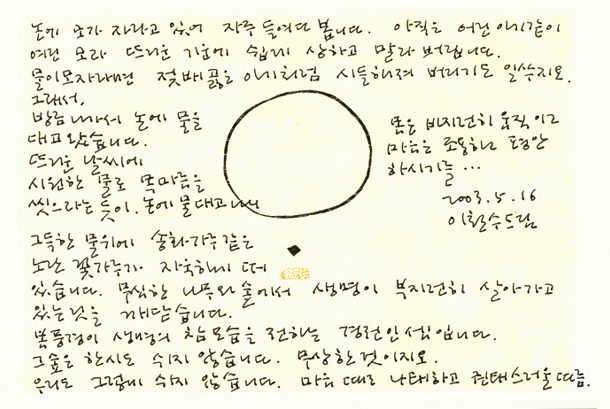 논에 모가 자라고 있어 자주 들여다 봅니다. 아직은 어린 아기같이
여린 모라 뜨거운 기운에 쉽게 상하고 말라 버립니다.
물이 모자라면 젖배 곯은 아기처럼 시들해져 버리기도 일쑤지요.
그래서,
밤중 나가서 논에 물을
대고 왔습니다.
뜨거운 날씨에
시원한 물로 목마름을
씻으라는 뜻이. 논에 물 대고 나니
그득한 물위에 송화가루 같은
노란 꽃가루가 자욱하니 떠
있습니다. 무심한 나무와 숲에서 생명이 부지런히 살아가고
있는 것을 깨닫습니다.
봄풍경이 생명의 참모습을 전하는 경전인 셈입니다.
그 숲은 한시도 쉬지 않습니다. 무상한 것이지요.
우리도 그렇게 쉬지 않습니다. 마음 때로 나태하고 권태스러울 따름.
몸은 부지런히 움직이고
마음은 조용하고 평안
하시기를...
2003. 5. 16
이철수 드림